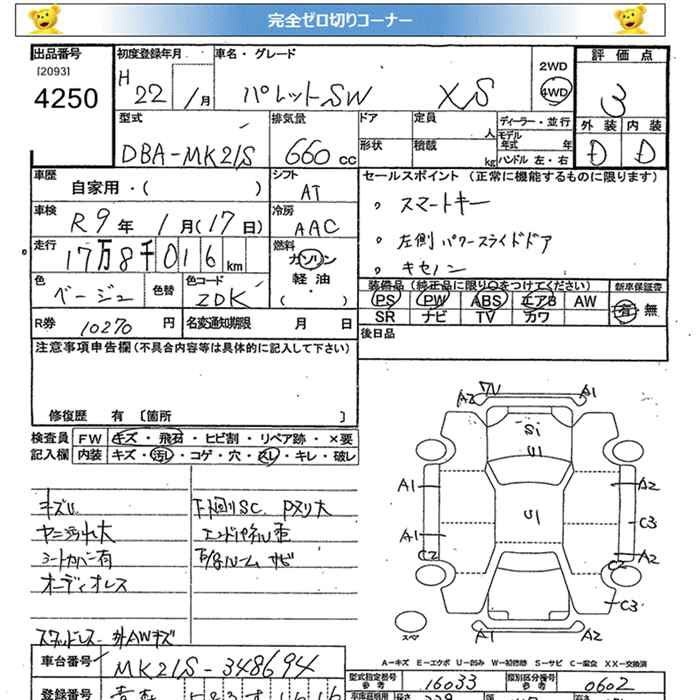 完全ゼロ切りコーナー
出品番号 初度登録年月 車名・グレード 2WD 評価点
[2093] 4250 H 22 1月 パレットSW XS 4WD 3
型式 排気量 ドア 定員 人 ディーラー・並行 外装 内装
DBA-MK21S 660cc 形状 積載 kg モデル年式 年 ハンドル 左・右 D D
車歴 自家用・( ) シフト AT セールスポイント (正常に機能するものに限ります)
車検 R9年 1月(17日) 冷房 AAC 。スマートキー
走行 17万8千016km 燃料 ガソリン 軽油 ( ) 。左側パワースライドドア
。キセノン
色 ベージュ 色替 色コード ZDK 装備品(純正品に限り○をつけてください) 新車保証書
PS PW ABS エアB AW 有・無
SR ナビ TV カワ
R券 10270円 名変通知期限 月 日 後日品
注意事項申告欄(不具合内容等は具体的に記入して下さい)
修復歴 有 [箇所 ]
検査員 FW キズ・飛石・ヒビ割・リペア跡・×要
記入欄 内装 キズ・汚レ・コゲ・穴・スレ・キレ・破レ
キズU 下廻りSC Pヌリ大
ヤニ汚れ大
シートカバー有
オーディオレス
スタッドレス 外AWキズ
A2 A1
S1
U1
A1 U1 A2
C3
A1 A2
C2 C2
C3
A1 A2
スペア
A-キズ E-エクボ U-凹み W-補修跡 S-サビ C-腐食 XX-交換済
車台番号 MK21S-348694 型式指定番号 参考 16033 類別区分番号 参考 0602
登録番号